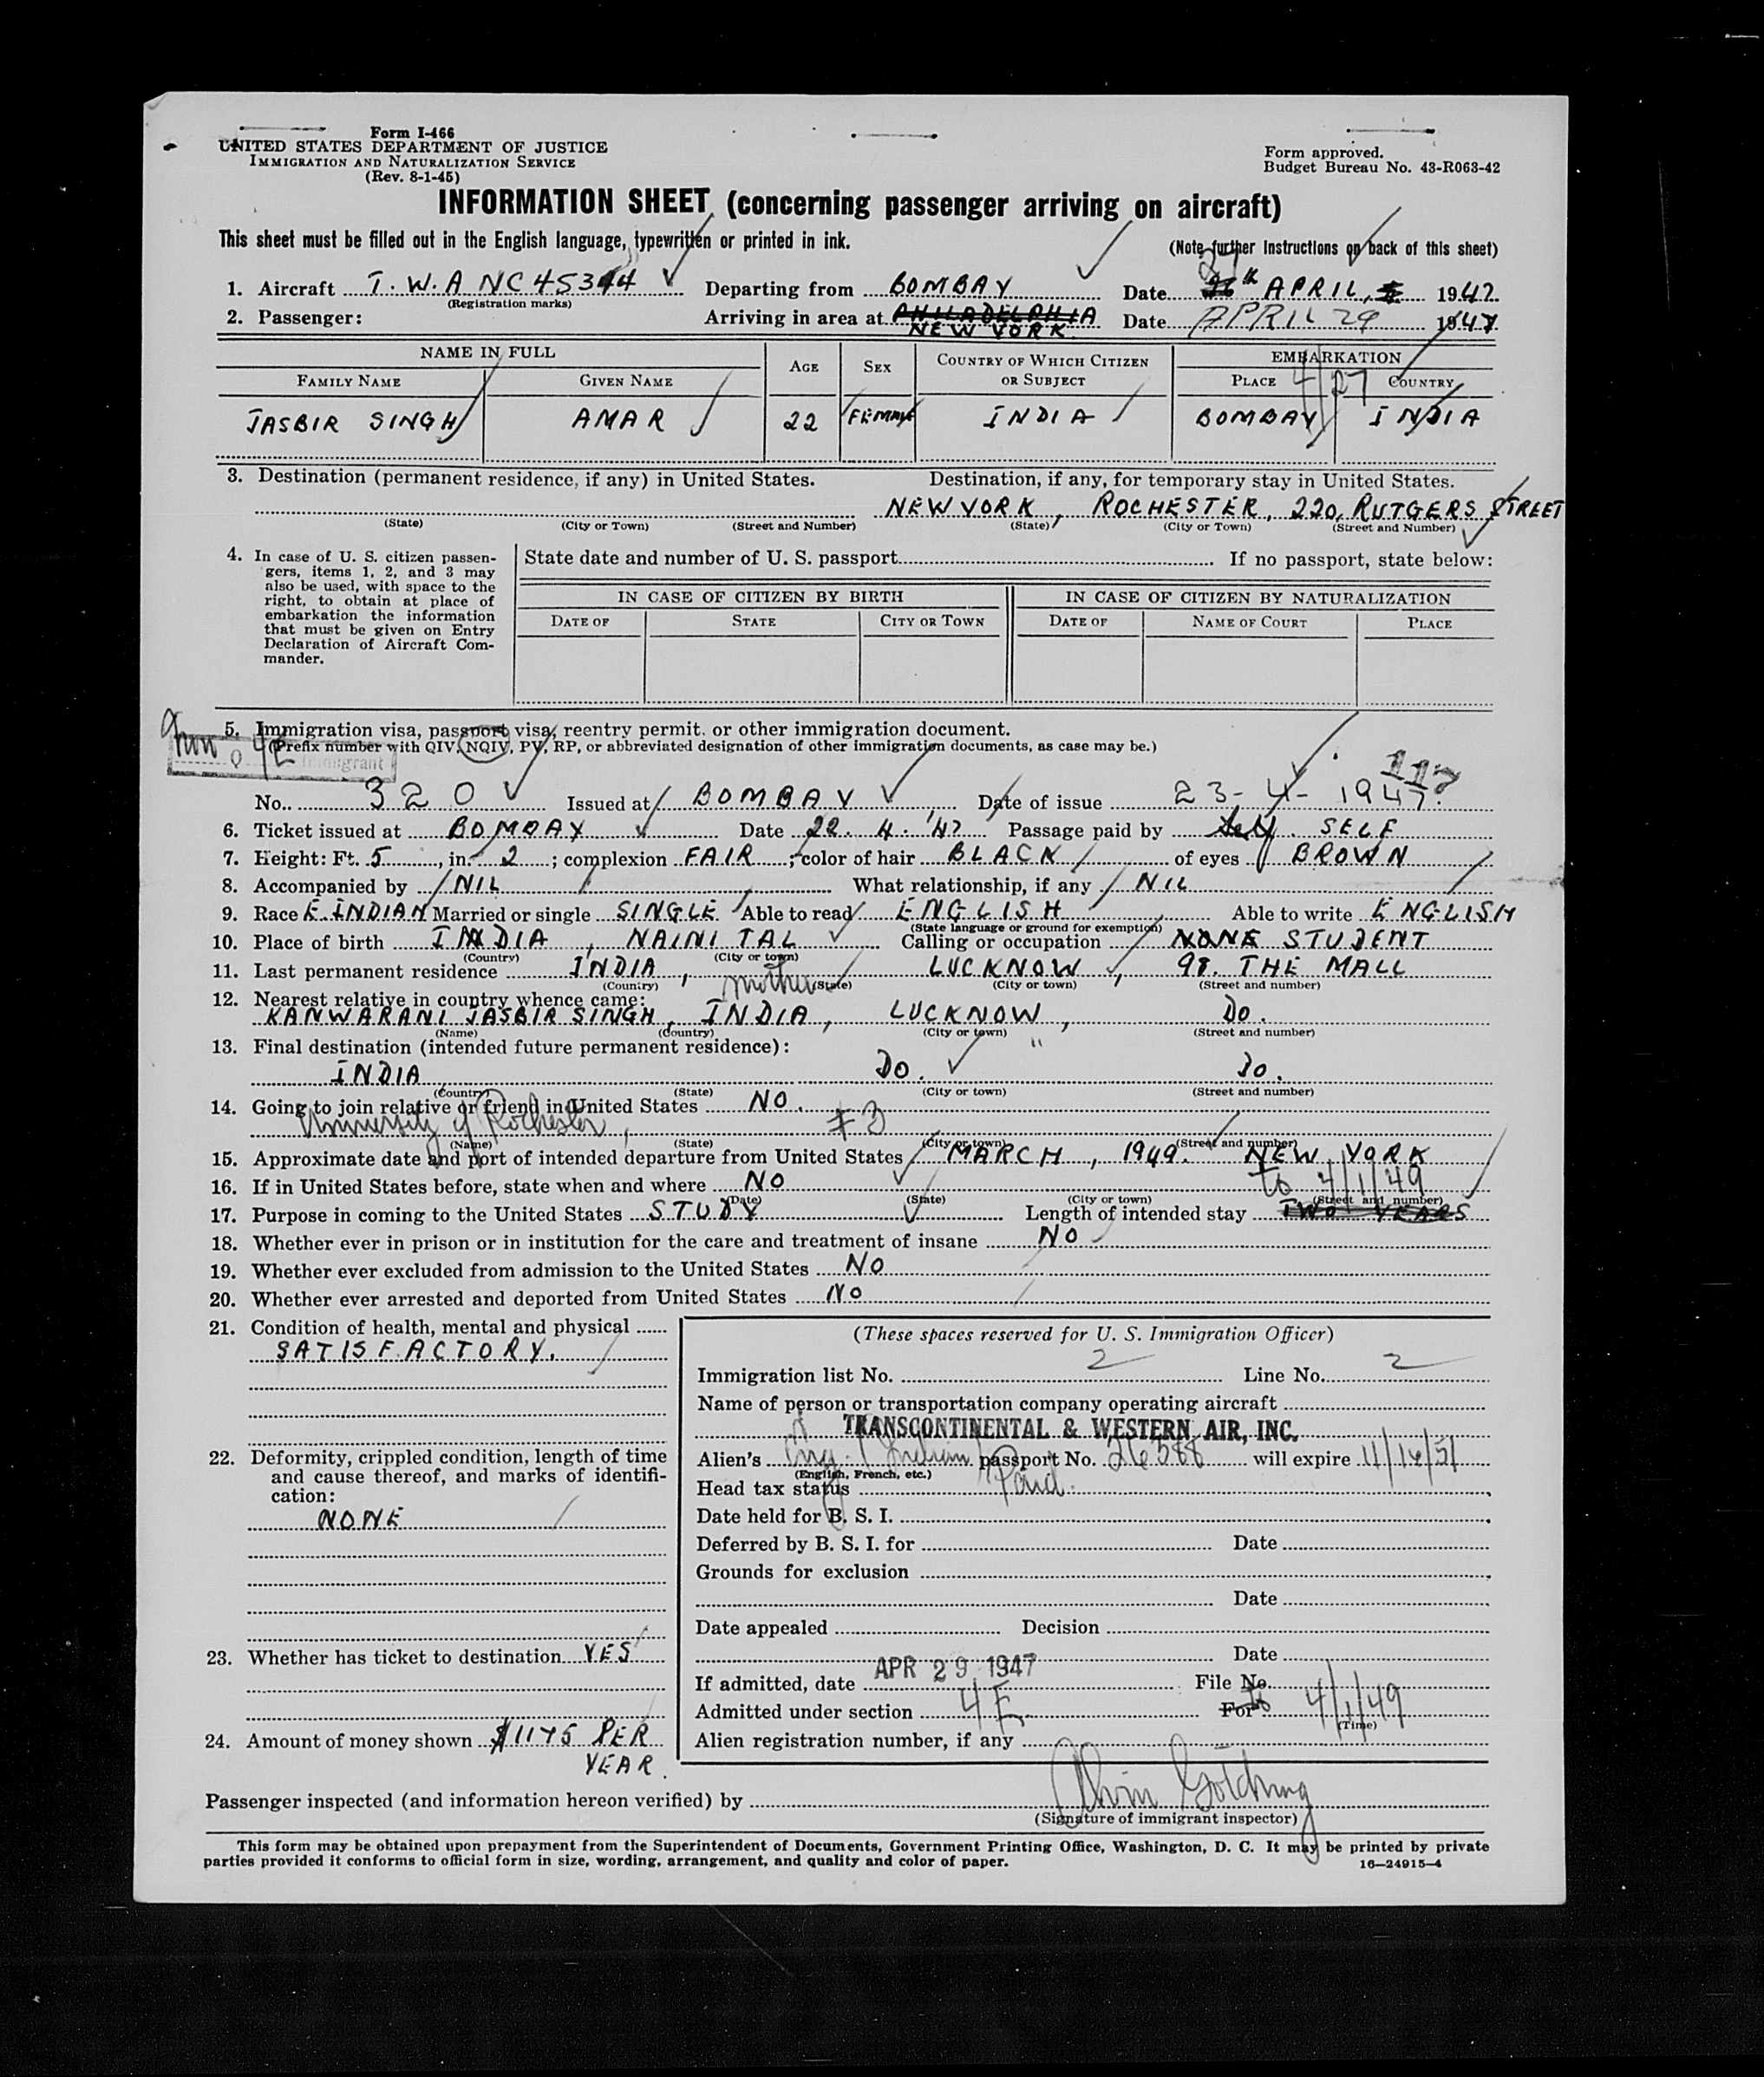 Form I-466
UNITED STATES DEPARTMENT OF JUSTICE
IMMIGRATION AND NATURALIZATION SERVICE
(Rev. 8-1-45)
Form approved.
Budget Bureau No. 43-R063-42
INFORMATION SHEET (concerning passenger arriving on aircraft)
This sheet must be filled out in the English language, typewritten or printed in ink. (Note further Instructions on back of this sheet)
27
1. Aircraft T.W.A NC 45344 Departing from BOMBAY Date th APRIL, 1947.
(Registration marks)
2. Passenger: Arriving in area at PHILADELPHIA Date APRIL 29 1947
NEW YORK
NAME IN FULL AGE SEX COUNTRY OF WHICH CITIZEN OR SUBJECT EMBARKATION
FAMILY NAME GIVEN NAME PLACE 4/27 COUNTRY
JASBIR SINGH AMAR 22 FEMALE INDIA BOMBAY INDIA
3. Destination (permanent residence, if any) in United States. Destination, if any, for temporary stay in United States.
NEW YORK, ROCHESTER, 220, RUTGERS STREET
(State) (City or Town) (Street and Number) (State) (City or Town) (Street and Number)
4. In case of U. S. citizen passengers, items 1, 2, and 3 may also be used, with space to the right, to obtain at place of embarkation the information that must be given on Entry Declaration of Aircraft Commander.
State date and number of U. S. passport If no passport, state below:
IN CASE OF CITIZEN BY BIRTH IN CASE OF CITIZEN BY NATURALIZATION
DATE OF STATE CITY OR TOWN DATE OF NAME OF COURT PLACE
5. Immigration visa, passport visa, reentry permit, or other immigration document.
(Prefix number with QIV, NQIV, PV, RP, or abbreviated designation of other immigration documents, as case may be.)
No. 320 Issued at BOMBAY Date of issue 23-4-1947.
6. Ticket issued at BOMBAY Date 22. 4. '47 Passage paid by Self. SELF
7. Height: Ft. 5, in. 2; complexion FAIR; color of hair BLACK of eyes BROWN
8. Accompanied by NIL What relationship, if any NIL
9. Race E. INDIAN Married or single SINGLE Able to read ENGLISH Able to write ENGLISH
(State language or ground for exemption)
10. Place of birth INDIA, NAINI TAL Calling or occupation NONE STUDENT
(Country) (City or town)
11. Last permanent residence INDIA, LUCKNOW, 98. THE MALL
(Country) mother (State) (City or town) (Street and number)
12. Nearest relative in country whence came:
KANWARANI JASBIR SINGH, INDIA, LUCKNOW, DO.
(Name) (Country) (City or town) (Street and number)
13. Final destination (intended future permanent residence):
INDIA DO. DO.
(Country) (State) (City or town) (Street and number)
14. Going to join relative or friend in United States NO.
University of Rochester,
(Name) (State) (City or town) (Street and number)
15. Approximate date and port of intended departure from United States MARCH, 1949. NEW YORK
16. If in United States before, state when and where NO to 4/1/49
(Date) (State) (City or town) (Street and number)
17. Purpose in coming to the United States STUDY Length of intended stay TWO YEARS
18. Whether ever in prison or in institution for the care and treatment of insane NO
19. Whether ever excluded from admission to the United States NO
20. Whether ever arrested and deported from United States NO
21. Condition of health, mental and physical
SATISFACTORY.
22. Deformity, crippled condition, length of time and cause thereof, and marks of identification:
NONE
23. Whether has ticket to destination YES
24. Amount of money shown $1175 PER
YEAR.
(These spaces reserved for U. S. Immigration Officer)
Immigration list No. 2 Line No. 2
Name of person or transportation company operating aircraft
TRANSCONTINENTAL & WESTERN AIR, INC.
Alien's Indian passport No. 26588 will expire 11/16/51
(English, French, etc.)
Head tax status Paid.
Date held for B. S. I.
Deferred by B. S. I. for Date
Grounds for exclusion
Date
Date appealed Decision
Date
If admitted, date APR 29 1947 File No.
Admitted under section 4E For to 4/1/49
(Time)
Alien registration number, if any
Passenger inspected (and information hereon verified) by
(Signature of immigrant inspector)
This form may be obtained upon prepayment from the Superintendent of Documents, Government Printing Office, Washington, D. C. It may be printed by private
parties provided it conforms to official form in size, wording, arrangement, and quality and color of paper. 16—24915-4